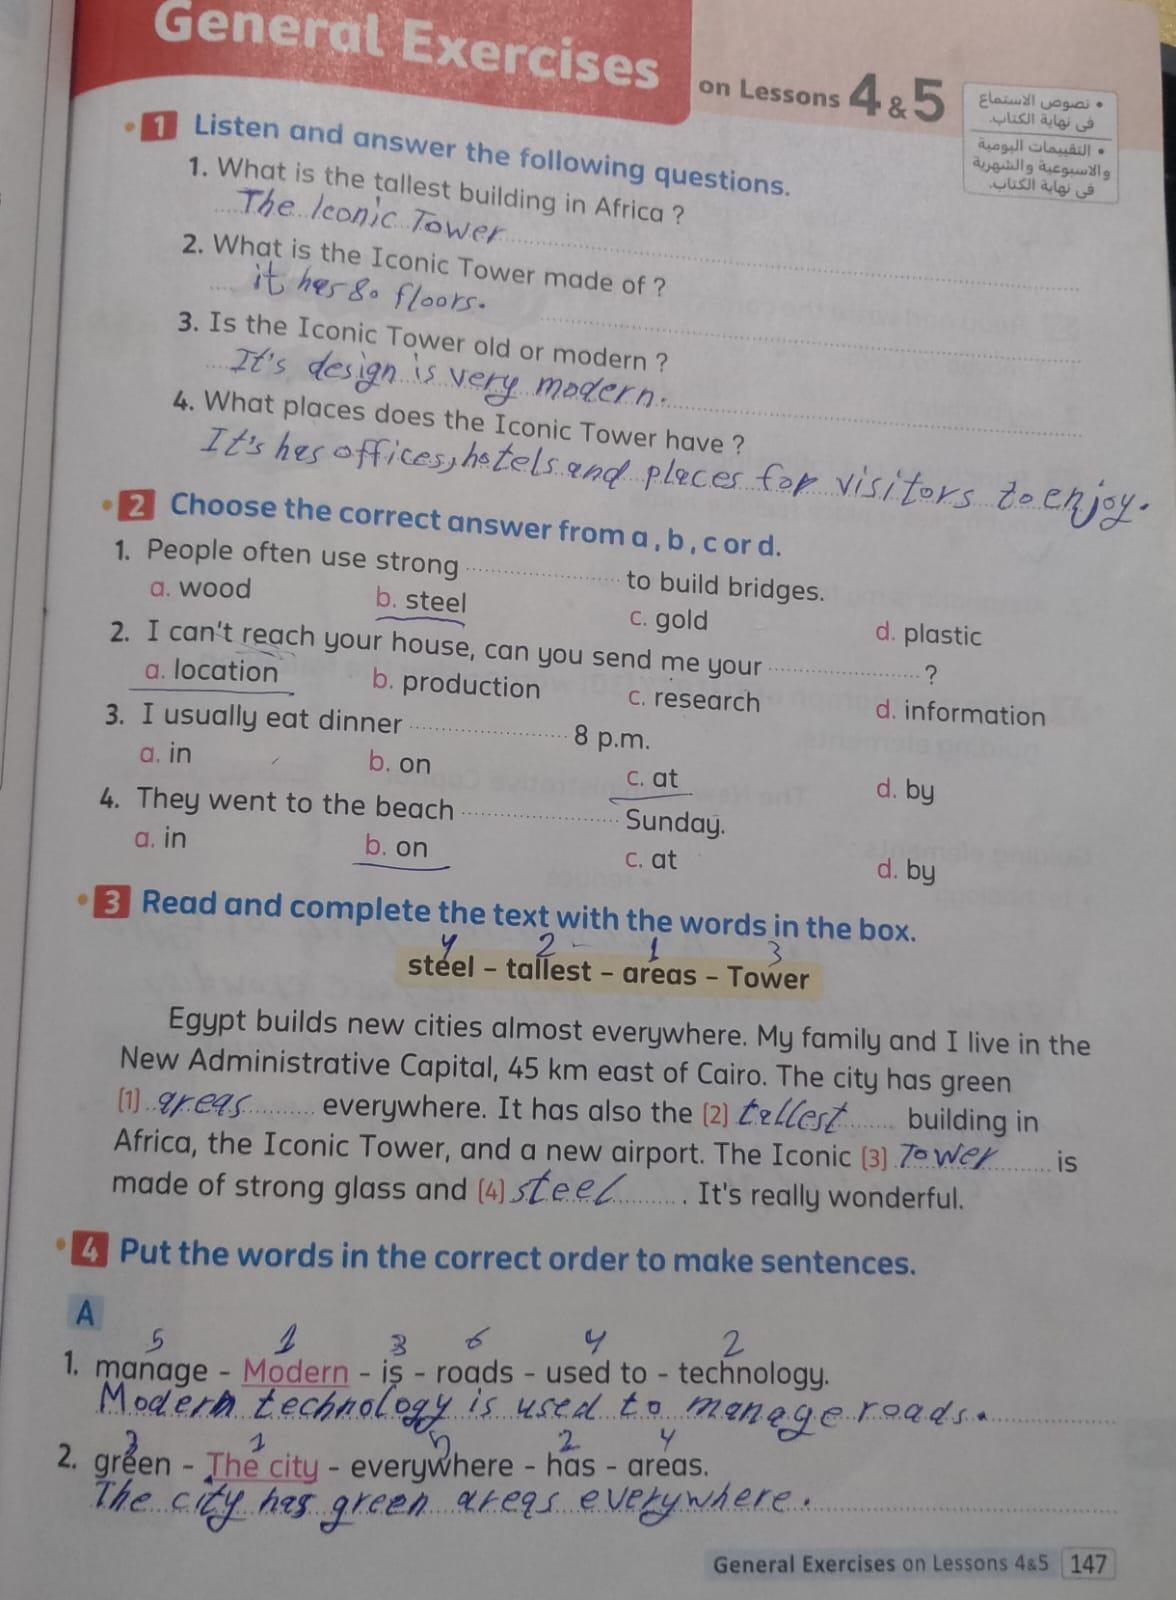 General Exercises
on Lessons 4 & 5
• نصوص الاستماع
فى نهاية الكتاب.
• التقييمات اليومية
والأسبوعية والشهرية
فى نهاية الكتاب.
1 Listen and answer the following questions.
1. What is the tallest building in Africa ?
The Iconic Tower
2. What is the Iconic Tower made of ?
it has 80 floors.
3. Is the Iconic Tower old or modern ?
It's design is very modern.
4. What places does the Iconic Tower have ?
It's has offices, hotels and places for visitors to enjoy.
2 Choose the correct answer from a , b , c or d.
1. People often use strong .................... to build bridges.
a. wood b. steel c. gold d. plastic
2. I can't reach your house, can you send me your .................... ?
a. location b. production c. research d. information
3. I usually eat dinner .................... 8 p.m.
a. in b. on c. at d. by
4. They went to the beach .................... Sunday.
a. in b. on c. at d. by
3 Read and complete the text with the words in the box.
4 2 1 3
steel – tallest – areas – Tower
Egypt builds new cities almost everywhere. My family and I live in the
New Administrative Capital, 45 km east of Cairo. The city has green
(1) areas everywhere. It has also the (2) tallest building in
Africa, the Iconic Tower, and a new airport. The Iconic (3) Tower is
made of strong glass and (4) steel . It's really wonderful.
4 Put the words in the correct order to make sentences.
A
5 1 3 6 4 2
1. manage – Modern – is – roads – used to – technology.
Modern technology is used to manage roads.
3 1 5 2 4
2. green – The city – everywhere – has – areas.
The city has green areas everywhere.
General Exercises on Lessons 4&5 147